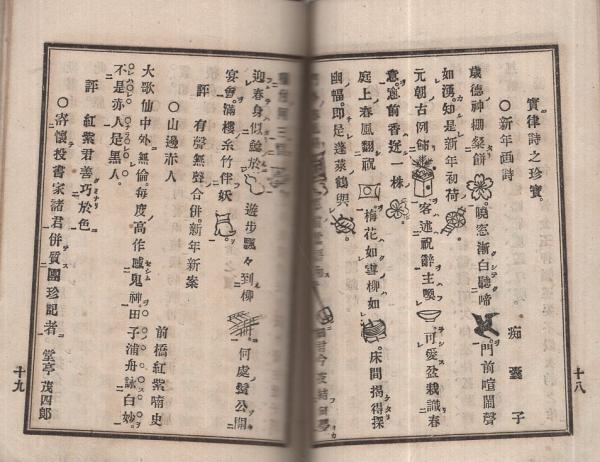 實律詩之珍寶。
○新年画詩
痴囊子
歳德神棚粲餅。曉窓漸白聽啼。門前喧鬧聲
如漢知是新年初荷。
元朝古例飾。客述祝辭主喚。可愛盆栽識春
意。窓前香送一株。
庭上春風翻祝。梅花如雪柳如。床間掲得探
幽幅。即是蓬萊鶴與
迎春身似餘於。遊步飄々到柳。何處髮公開
宴會。滿樓糸竹伴妖
評 有聲無聲合併。新年新案
○山邊赤人
前橋紅紫喃史
大歌仙中外無倫。每度高作感鬼神。田子浦舟詠白妙。
不是赤人是黑人。
評 紅紫君善巧於色
○寄懷投書家諸君併質團珍記者 堂亭茂四郎
十八
十九